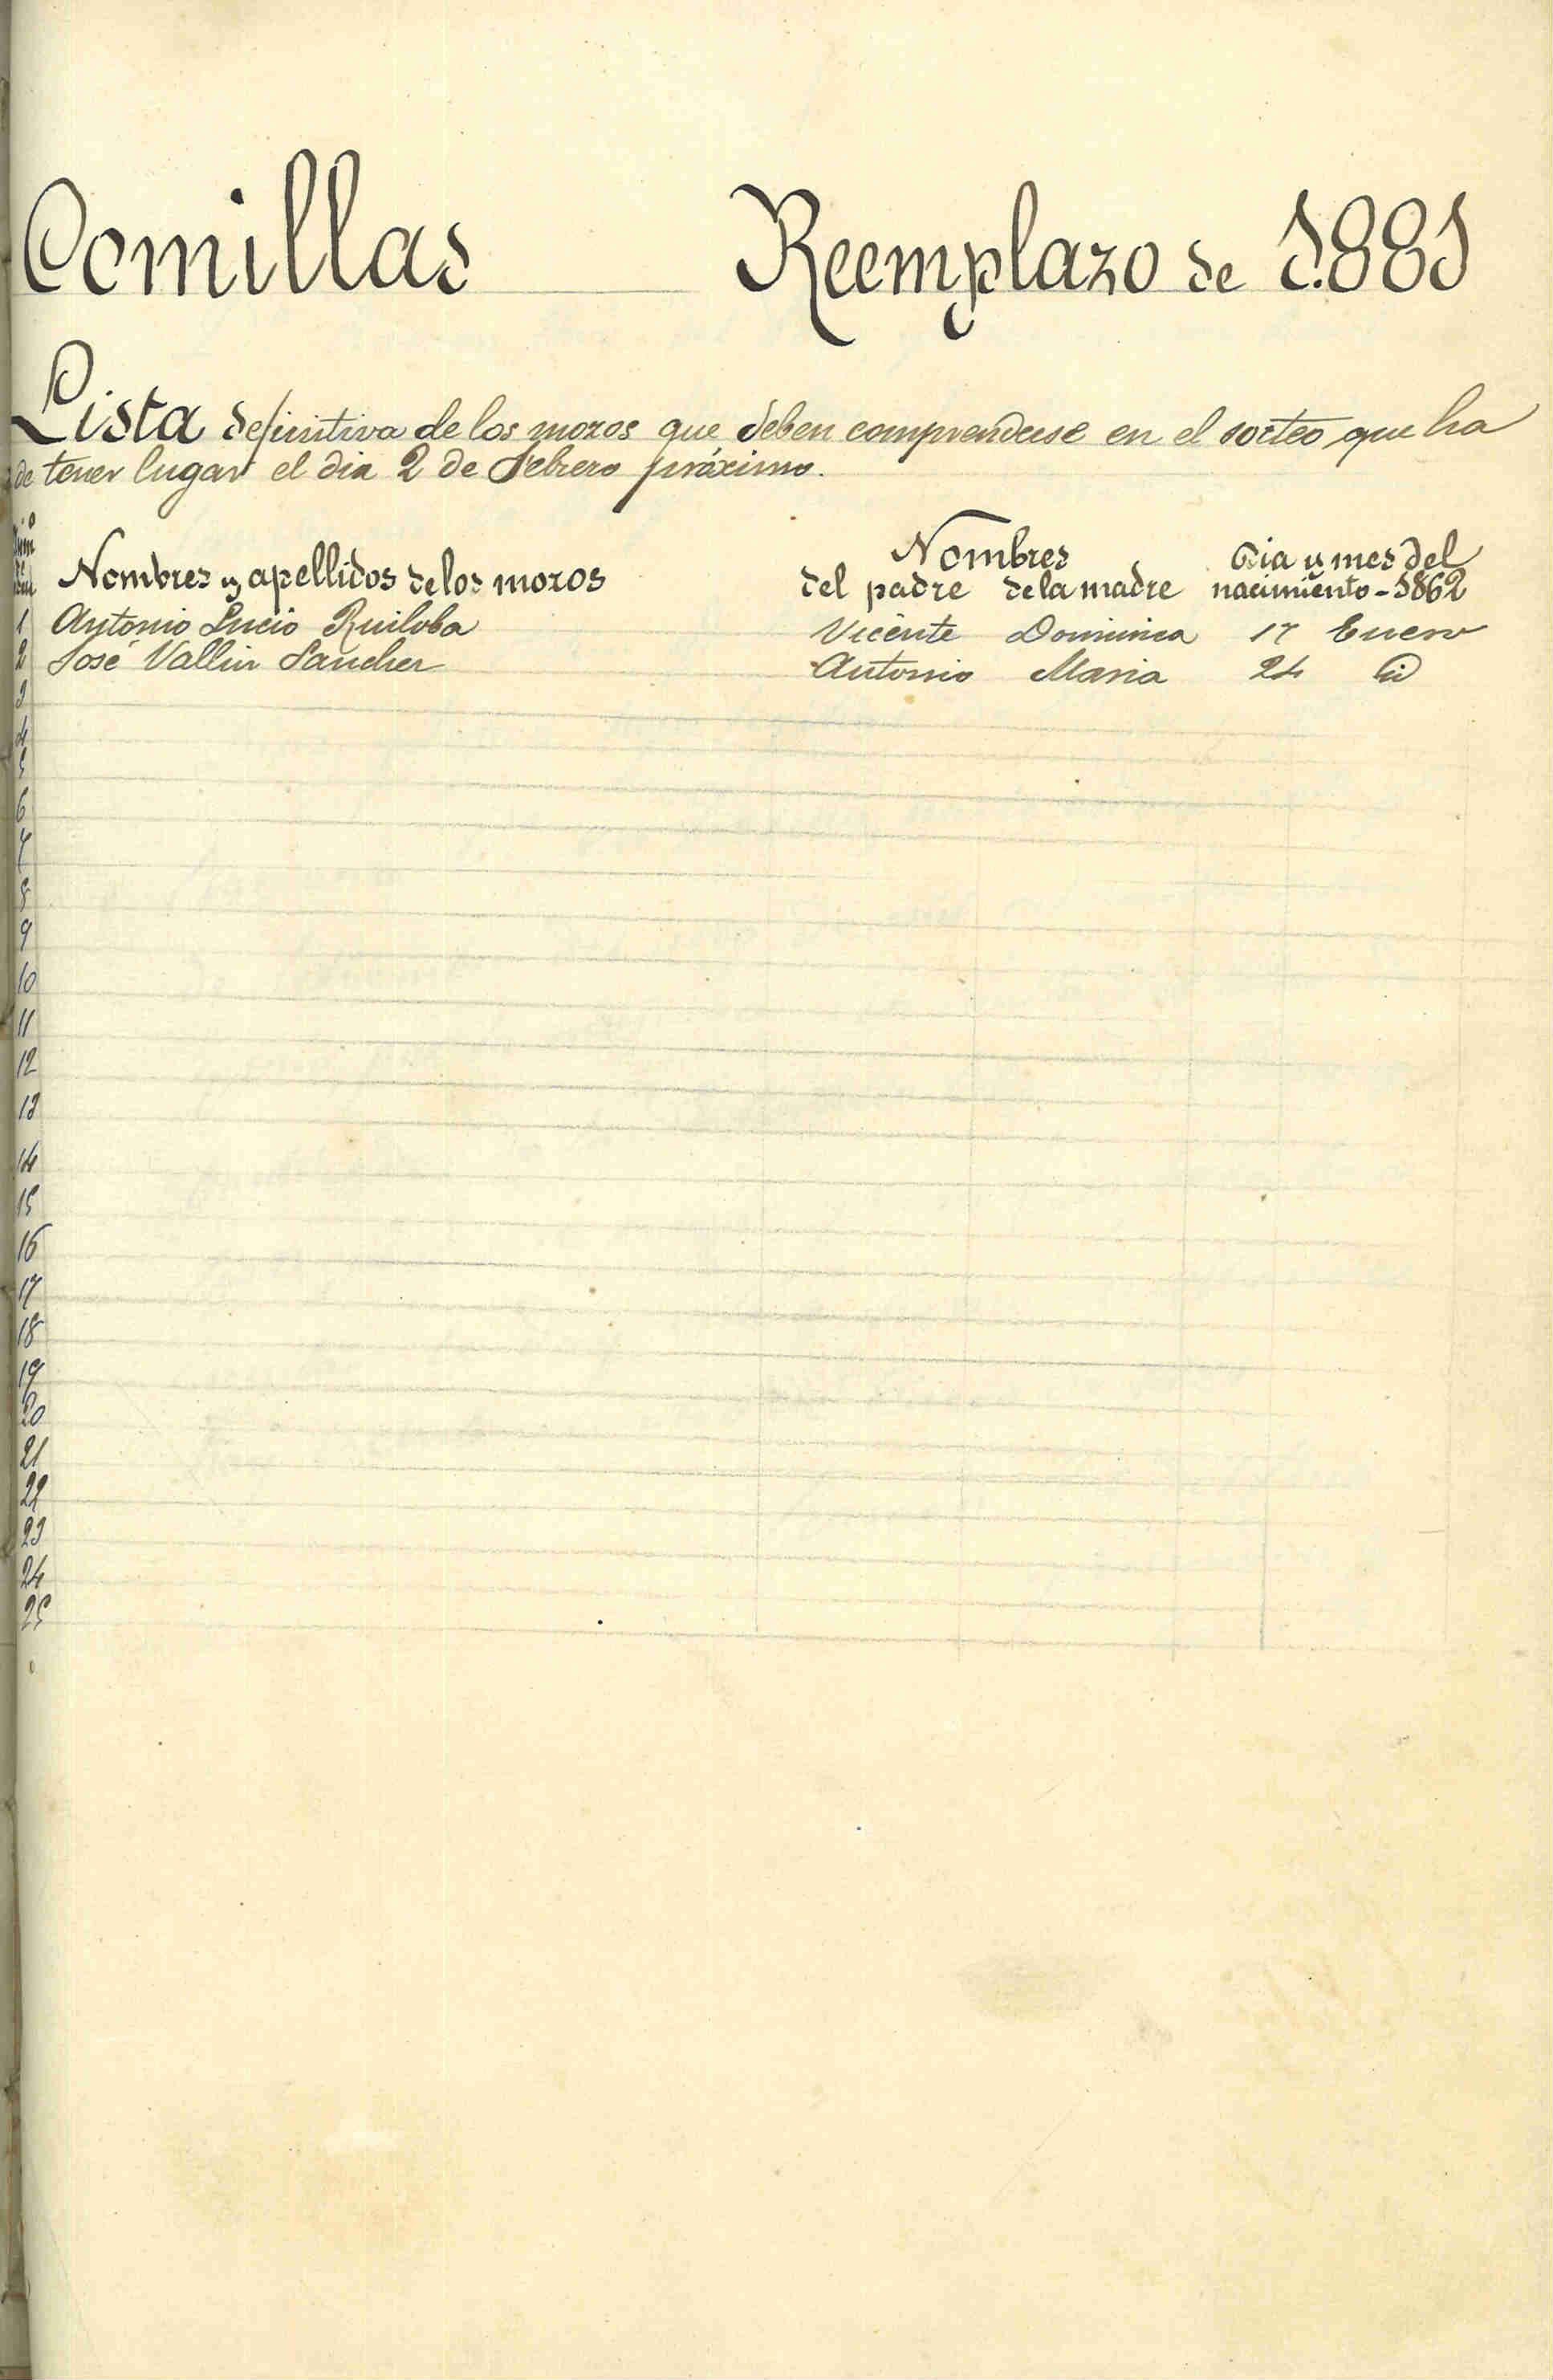 Comillas Reemplazo de 1.881
Lista definitiva de los mozos que deben comprenderse en el sorteo que ha
de tener lugar el dia 2 de Febrero próximo.
Nombres Dia y mes del
Nombres y apellidos de los mozos del padre de la madre nacimiento - 1862
1 Antonio Lucio Ruiloba Vicente Dominica 17 Enero
2 José Vallin Sanchez Antonio Maria 24 id
3
4
5
6
7
8
9
10
11
12
13
14
15
16
17
18
19
20
21
22
23
24
25